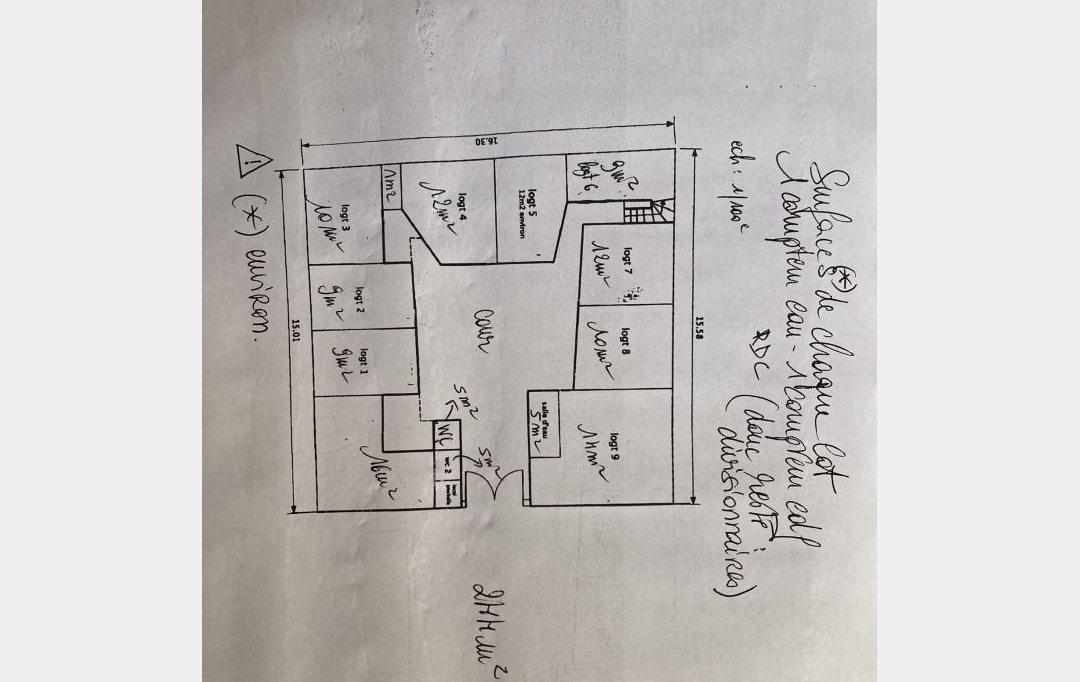 Surfaces (*) de chaque lot
1 compteur eau - 1 compteur edf
RDC (donc reste :
divisionnaires)
ech: 1/100e
15.58
16.30
15.01
9m²
logt 6
logt 7
12m²
logt 8
10m²
logt 9
salle d'eau
5m²
logt 5
12m2 environ
logt 4
12m²
1m²
logt 3
10m²
logt 2
9m²
logt 1
9m²
16m²
cour
5m²
WC
5m²
wc 2
local
poubelle
(*) environ.